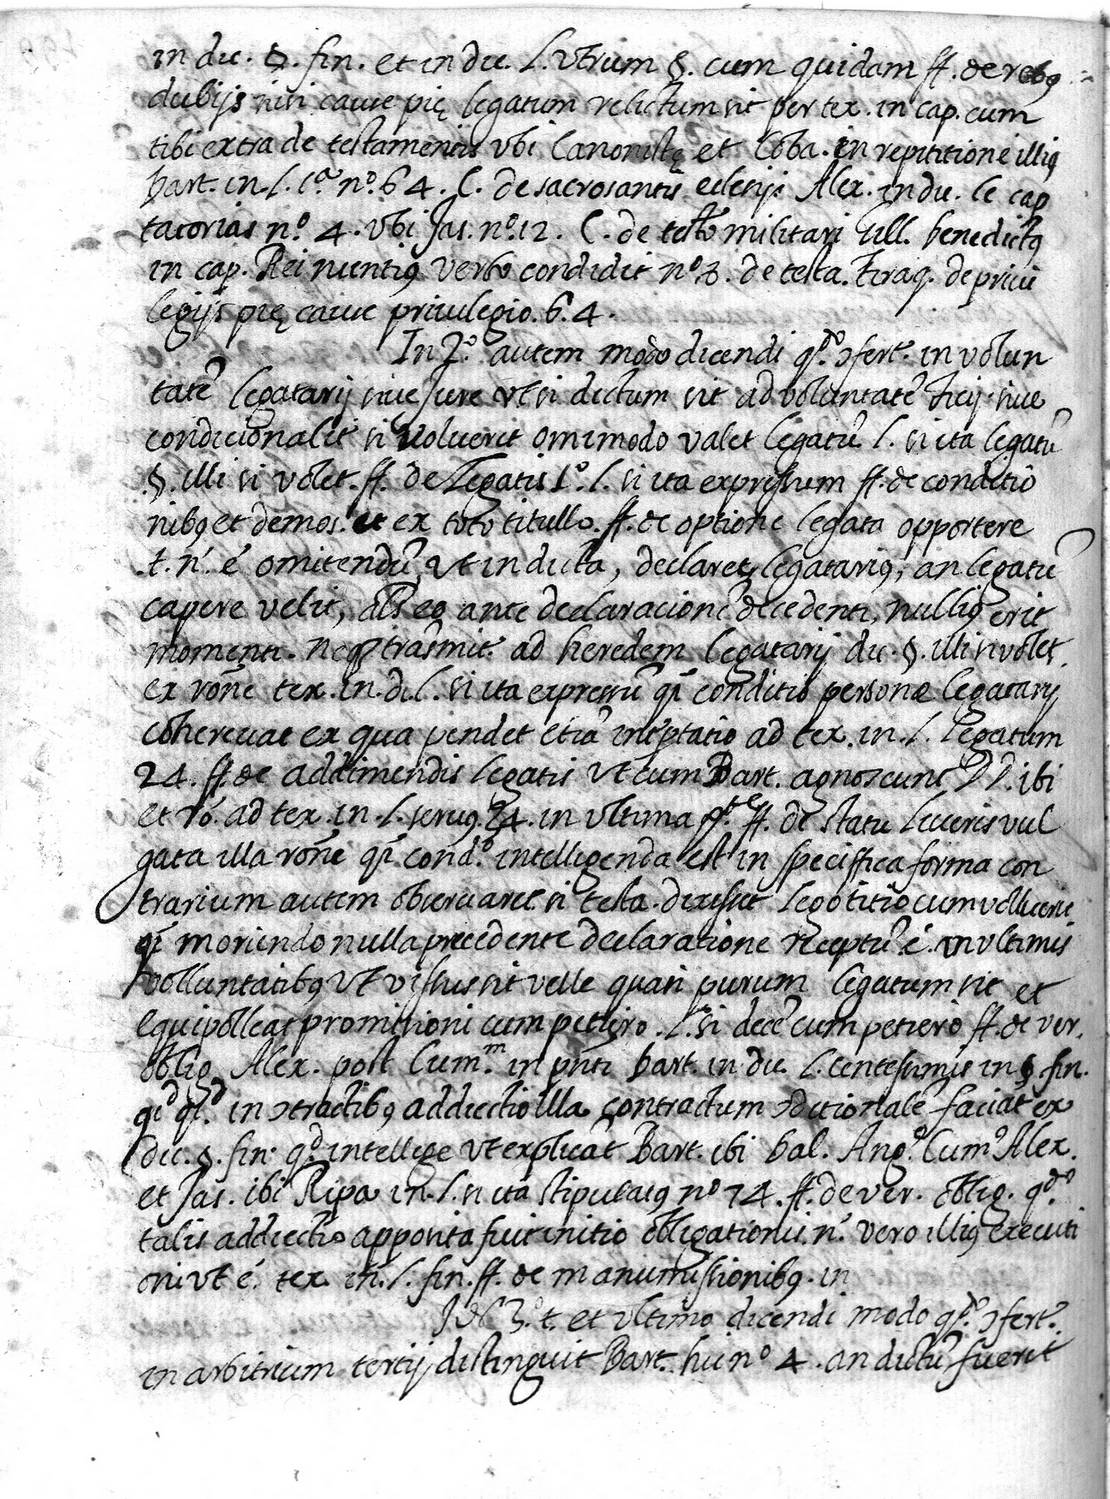 in dic. §. fin. et in dic. l. utrum §. cum quidam ff. de rebꝯ
dubijs nisi causæ pię legatum relictum sit per tex. in cap. cum
tibi extra de testamentis ubi Canonistę et Coba. in repititione illiꝯ
bart. in l. 1.ª nº. 64. C. de sacrosantis eclesijs Alex. in dic. l. cap
tatorias nº. 4. ubi Jas. nº. 12. C. de testo militari Gull. benedictꝯ
in cap. Rainuntiꝯ verbo condidit nº 3. de testa. Tiraq. de privi
legijs pię causæ privilegio. 64.
In 2º. autem modo dicendi qdo ɔfertr. in volun
tatē legatarij sive jure ut si dictum sit ad voluntatē Ticij. sive
condicionalit si voluerit omimodo valet legatū l. si ita legatū
§. illi si volet. ff. de Legatis 1º. l. si ita expressum ff. de conditio
nibꝯ et demos. et ex toto titullo. ff. de optione legata opportere
t. n. é omitendū, ut in dicta, declaret legatariꝯ, an legatū
capere velit, als eo ante declaracionē decedenti, nulliꝯ erit
momenti. neqꝫ trāsmit ad heredem legatarij dic. §. illi si volet.
ex rōne tex. in. d. l. si ita expressū qā conditio personæ legatarij
cohereat ex qua pendet etiā inteptatio ad tex. in. l. legatum
24. ff. de addimendis legatis ut cum Bart. agnoscunt DD. ibi
et Ro. ad tex. in l. servꝯ 24. in ultima pte ff. de statu liveris vul
gata illa rōne qā condº. intelligenda est in speciffica forma con
trarium autem observaret si testa. dixisset lego titio cum voluerit
qā moriendo nulla precedente declaratione receptū é in ultimis
volluntatibꝯ ut vissus sit velle quasi purum legatum sit et
equipolleat promissioni cum petiero. l. si decē cum petiero ff. de ver.
oblig. Alex. post Cum.m in pnti bart. in dic. l. centesimis in § fin.
qd ql. in ɔtractibꝯ addiectio illa contractum ɔditionalē faciat ex
dic. §. fin. qd intellige ut explicat Bart. ibi bal. Angº. Cumº. Alex.
et Jas. ibi Ripa in. l. si ita stipulatꝯ nº 74. ff. de ver. oblig. qdo
talis addiectio apposita fuit initio obligationis n. vero illiꝯ executi
oni ut é tex. in. l. fin. ff. de manumissionibꝯ. in
In 3º. t. et ultimo dicendi modo qdo ɔfertr.
in arbitrium tertij distinguit Bart. hi nº 4. an dictū fuerit